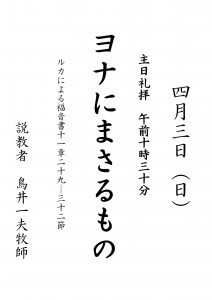 四月三日（日）
主日礼拝　午前十時三十分
ヨナにまさるもの
ルカによる福音書十一章二十九―三十二節
説教者　鳥井一夫牧師